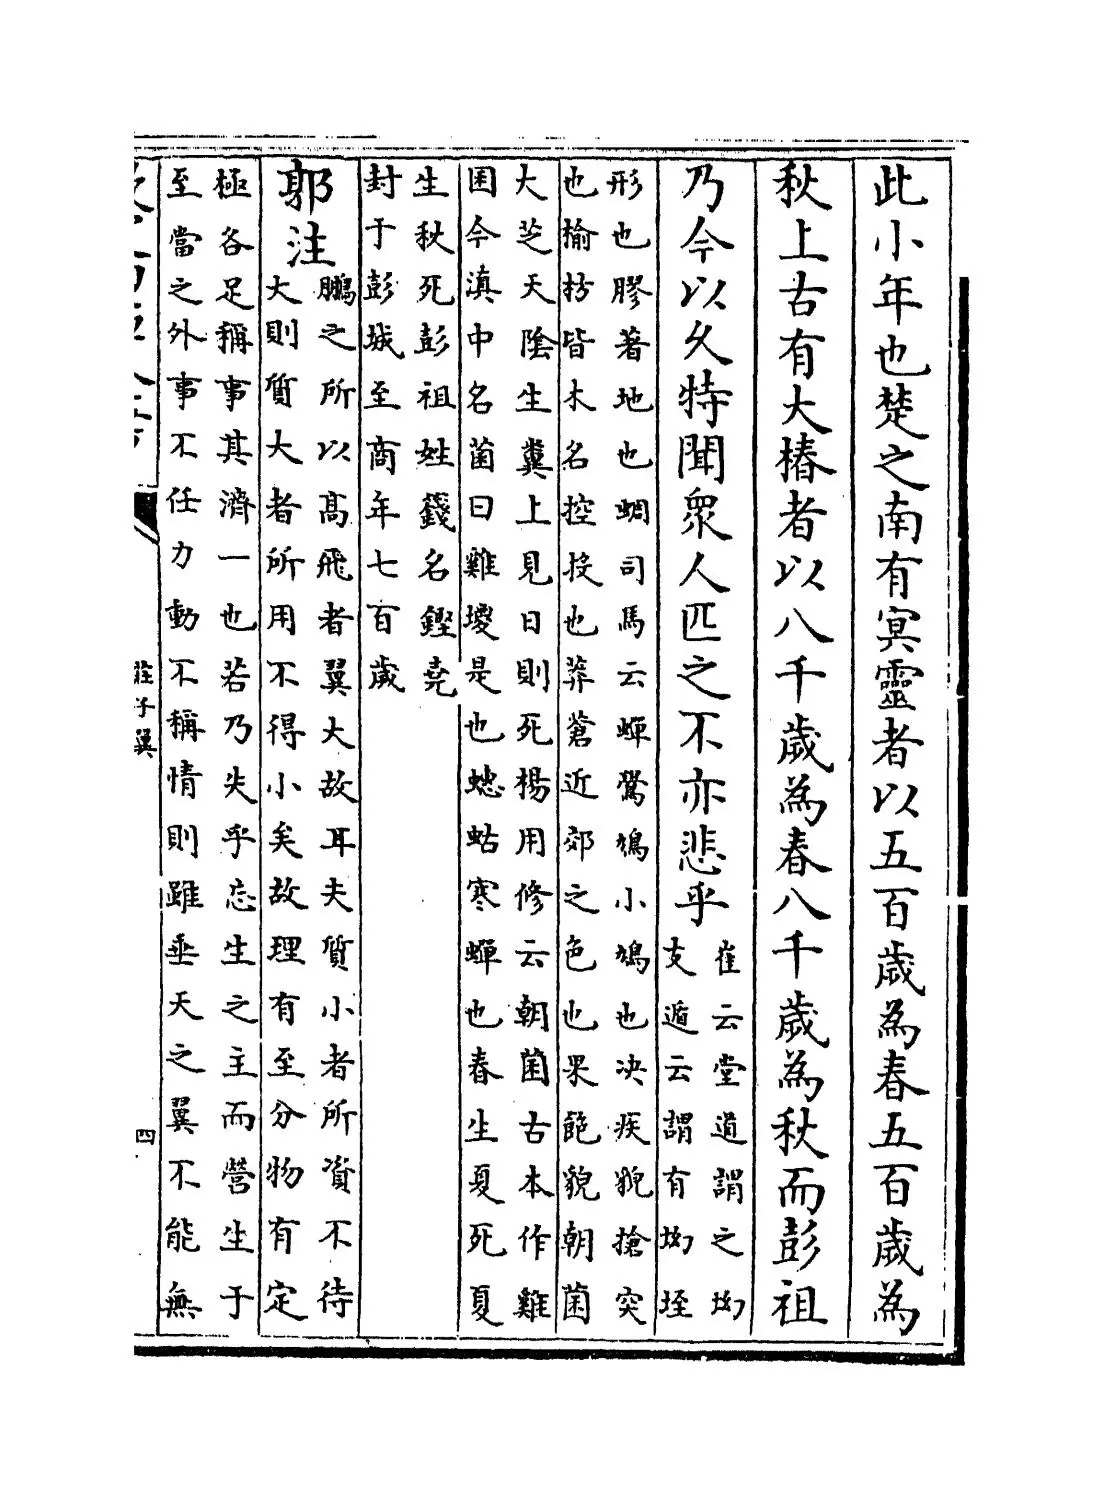 此小年也楚之南有冥靈者以五百歲為春五百歲為
秋上古有大椿者以八千歲為春八千歲為秋而彭祖
乃今以久特聞衆人匹之不亦悲乎
崔云堂道謂之坳
支遁云謂有坳垤
形也膠著地也蜩司馬云蟬鷽鳩小鳩也决疾貌搶突
也榆枋皆木名控投也莽蒼近郊之色也果飽貌朝菌
大芝天隂生糞上見日則死楊用修云朝菌古本作雞
菌今滇中名菌曰雞㙡是也蟪蛄寒蟬也春生夏死夏
生秋死彭祖姓籛名鏗堯
封于彭城至商年七百歲
郭注
鵬之所以髙飛者翼大故耳夫質小者所資不待
大則質大者所用不得小矣故理有至分物有定
極各足稱事其濟一也若乃失乎忘生之主而營生于
至當之外事不任力動不稱情則雖垂天之翼不能無
莊子翼
四